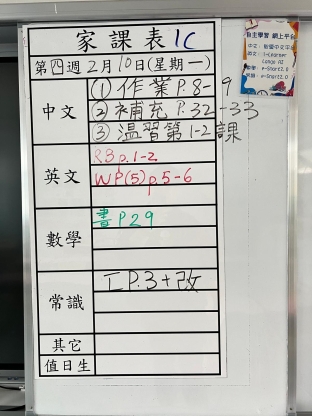 家課表 1C
第四週2月10日(星期一)
中文
① 作業 P.8-9
② 補充 P.32-33
③ 温習第1-2課
英文
RB p.1-2
WP(5) p.5-6
數學
書 P29
常識
工P.3+改
其它
值日生
自主學習 網上平台